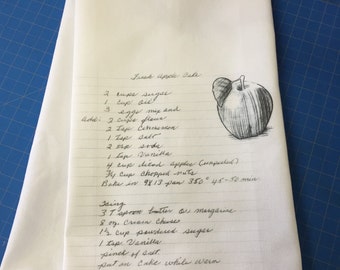 Fresh Apple Cake
2 cups sugar
1 cup oil
3 eggs mix and
Add: 2 cups flour
2 tsp Cinnamon
1 tsp salt
2 tsp soda
1 tsp Vanilla
4 cup diced apples (unpeeled)
3/4 cup chopped nuts
Bake in 9x13 pan 350° 45-50 min
Icing
3 T spoon butter or margarine
8 oz Cream Cheese
1½ cup powdered sugar
1 tsp. Vanilla
pinch of salt
put on Cake while warm